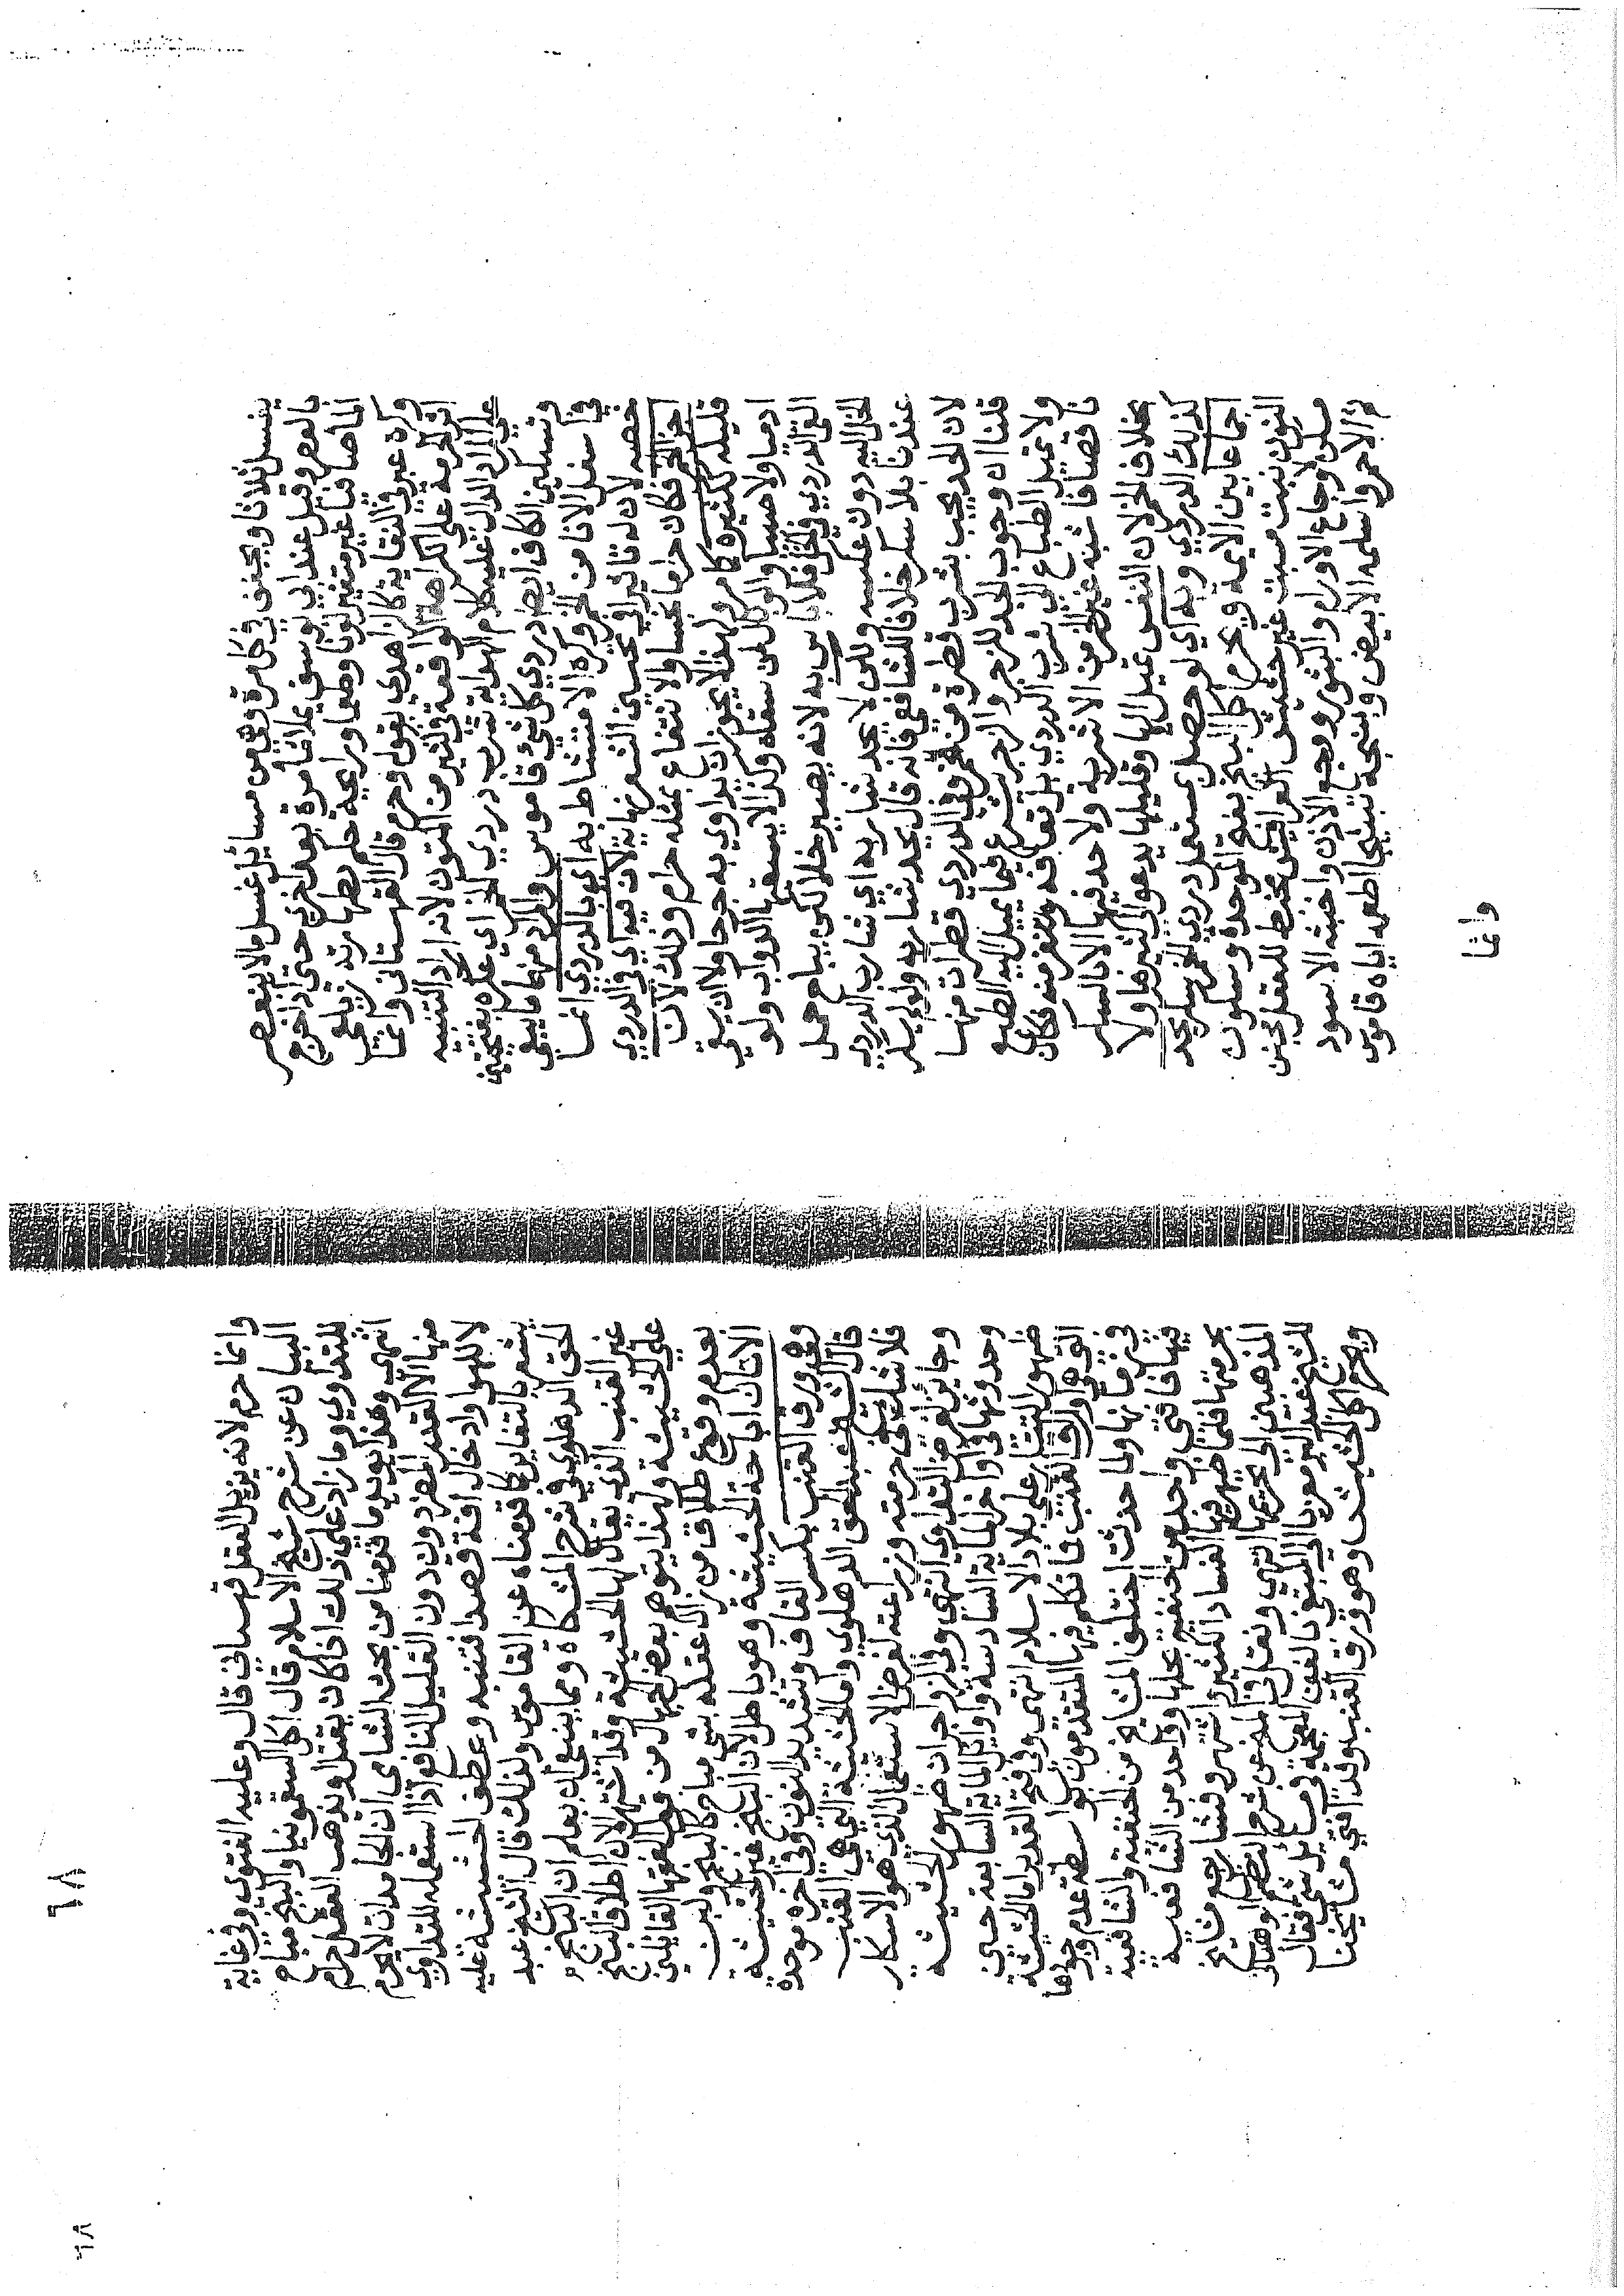 يغسل ثلاثا ويجفف في كل مرة وهي من مسايل غسل ما لا ينعصر
بالعصر وقيل عند ابي يوسف يملا مأ مرة بعد اخري حتي اذا خرج
الما صافيا غير متغير لونا وطعما ورايحة حكم بطهارته زيلعي
وكره عبر في النقاية كالزاهدي بقول وحرم قال القهستاني وانما
اثر الحرمة علي الكراهة الواقعة في كثير من المتون لانه اراد التنبيه
علي المراد الدال عليه كلام الهداية شرب دردي الخمر اي عكره بفتحتين
وتسكين الكاف ايضا دردي كل شئ قاموس والمراد منها ما يبقي
في اسفل الانا من الخمر وكره الامتشاط به اي بالدردي انما
خصه لان له تاثيرا في تحسين الشعر نهاية لان فيه اي في الدردي
اجزا الخمر فكان حراما نجسا والانتفاع بمثله حرام وذلك لان
قليله ككثيره كما مر ولهذا لا يجوز ان يداوي به جرحا ولا ان يسقي
ادميا ولا صبيا والوبال لمن سقاه وكذا لا يسقيها الدواب ولو
القي الدردي في الخل فلا باس به لانه يصير خلا لكن يباح حمل
الخل اليه دون عكسه ولكن لا يحد شاربه اي شارب الدردي
عندنا بلا سكر خلافا للشافعي فانه قال يحد شاربه ولو لم يسكر
لان الحد يجب بشرب قطرة من خمر وفي الدردي قطرات منها
قلنا ان وجوب الحد للزجر والزجر يشرع فيما يميل اليه الطبع
ولا تميل الطباع الي شرب الدردي بل تعافه وتنفر منه فكان
ناقصا فاشبه غير الخمر من الاشربة ولا حد فيها الا بالسكر
بخلاف الخمر لان النفس تميل اليها وقليلها يدعو الي كثيرها ولا
كذلك الدردي وبه اي لو حصل بمستعمل دردي الخمر سكر يحد
اجماعا بين الايمة ويحرم اكل البنج بفتح الموحدة وسكون
النون نبت مسبت غير حشيش الحرافيش مخبط للعقل مجنن
مسكن لاوجاع الاورام والبثور ووجع الاذن واخبثه الاسود
ثم الاحمر واسلمه الابيض وبنجه تبنيجا اطعمه اياه قاموس
وانما
وانما حرم لانه يزيل العقل قهستاني قال وعليه الفتوي وفي غاية
البيان عن شرح شيخ الاسلام قال اكل السقمونيا والبنج مباح
للتداوي وما زاد علي ذلك اذا كان يقتل او يذهب العقل حرام
انتهي وهذا يويد ما قدمنا من بحث الشامي ان الجامدات لا يحرم
منها الا القدر المضر دون القليل النافع اذا استعمله للتداوي
لا للهو او ادخال افة قصدا فتنبه وعطف الحشيشة عليه
يشعر بالتغاير كما قدمناه عن القاموس ولذلك قال الشيخ عبد
الحق الدهلوي في شرح المشكاة ومما ينبغي ان يعلم ان البنج
غير القنب الذي يقال لها الحشيشة وقد اشتهر الان اطلاق البنج
علي الحشيشة ولهذا يتوهم بعض الجهال من قول الفقها القائلين
بعدم وقوع طلاق من زال عقله بشي مباح كالبنج ولبن
الاتان اباحة الحشيشة وهو باطل لان البنج غير الحشيشة
وهي ورق القنب بكسر القاف وتشديد النون وفي اخره موحدة
قال الشيخ عبد الحق الدهلوي واما الحشيشة التي هي القنب
فلا شك في حرمته وزراعته لغرض الاستعمال الذي هو الاسكار
وجايز لغرض التداوي انتهي وفي الزواجر ان ظهور الحشيشة
وحدوثها في اواخر الماية السادسة واوايل الماية السابعة حين
ظهور التتار علي بلاد الاسلام انتهي وفي فتح القدير اما الحشيشة
التي هي ورق القنب فما تكلم فيها المتقدمون بواسطة عدم وجودها
في زمانها ولما حدثت اختلف المشايخ من الحنفية والشافعية
فيها فافتي واحد من الحنفية بحلها وواحد من الشافعية
بحرمتها فلما ظهر فيها الفساد الكثير واشتهر وفشا رجع مشايخ
المذهبين الي تحريمها انتهي ونقل في المنح عن شرح النظم الوهباني
للشيخ عبد البر معزيا الي المبتغي بالغين المعجمة في مسايل شتي فقال
ويحرم اكل الحشيش وهو ورق القنب وقد افتي مشايخنا
٦٨
٦٨